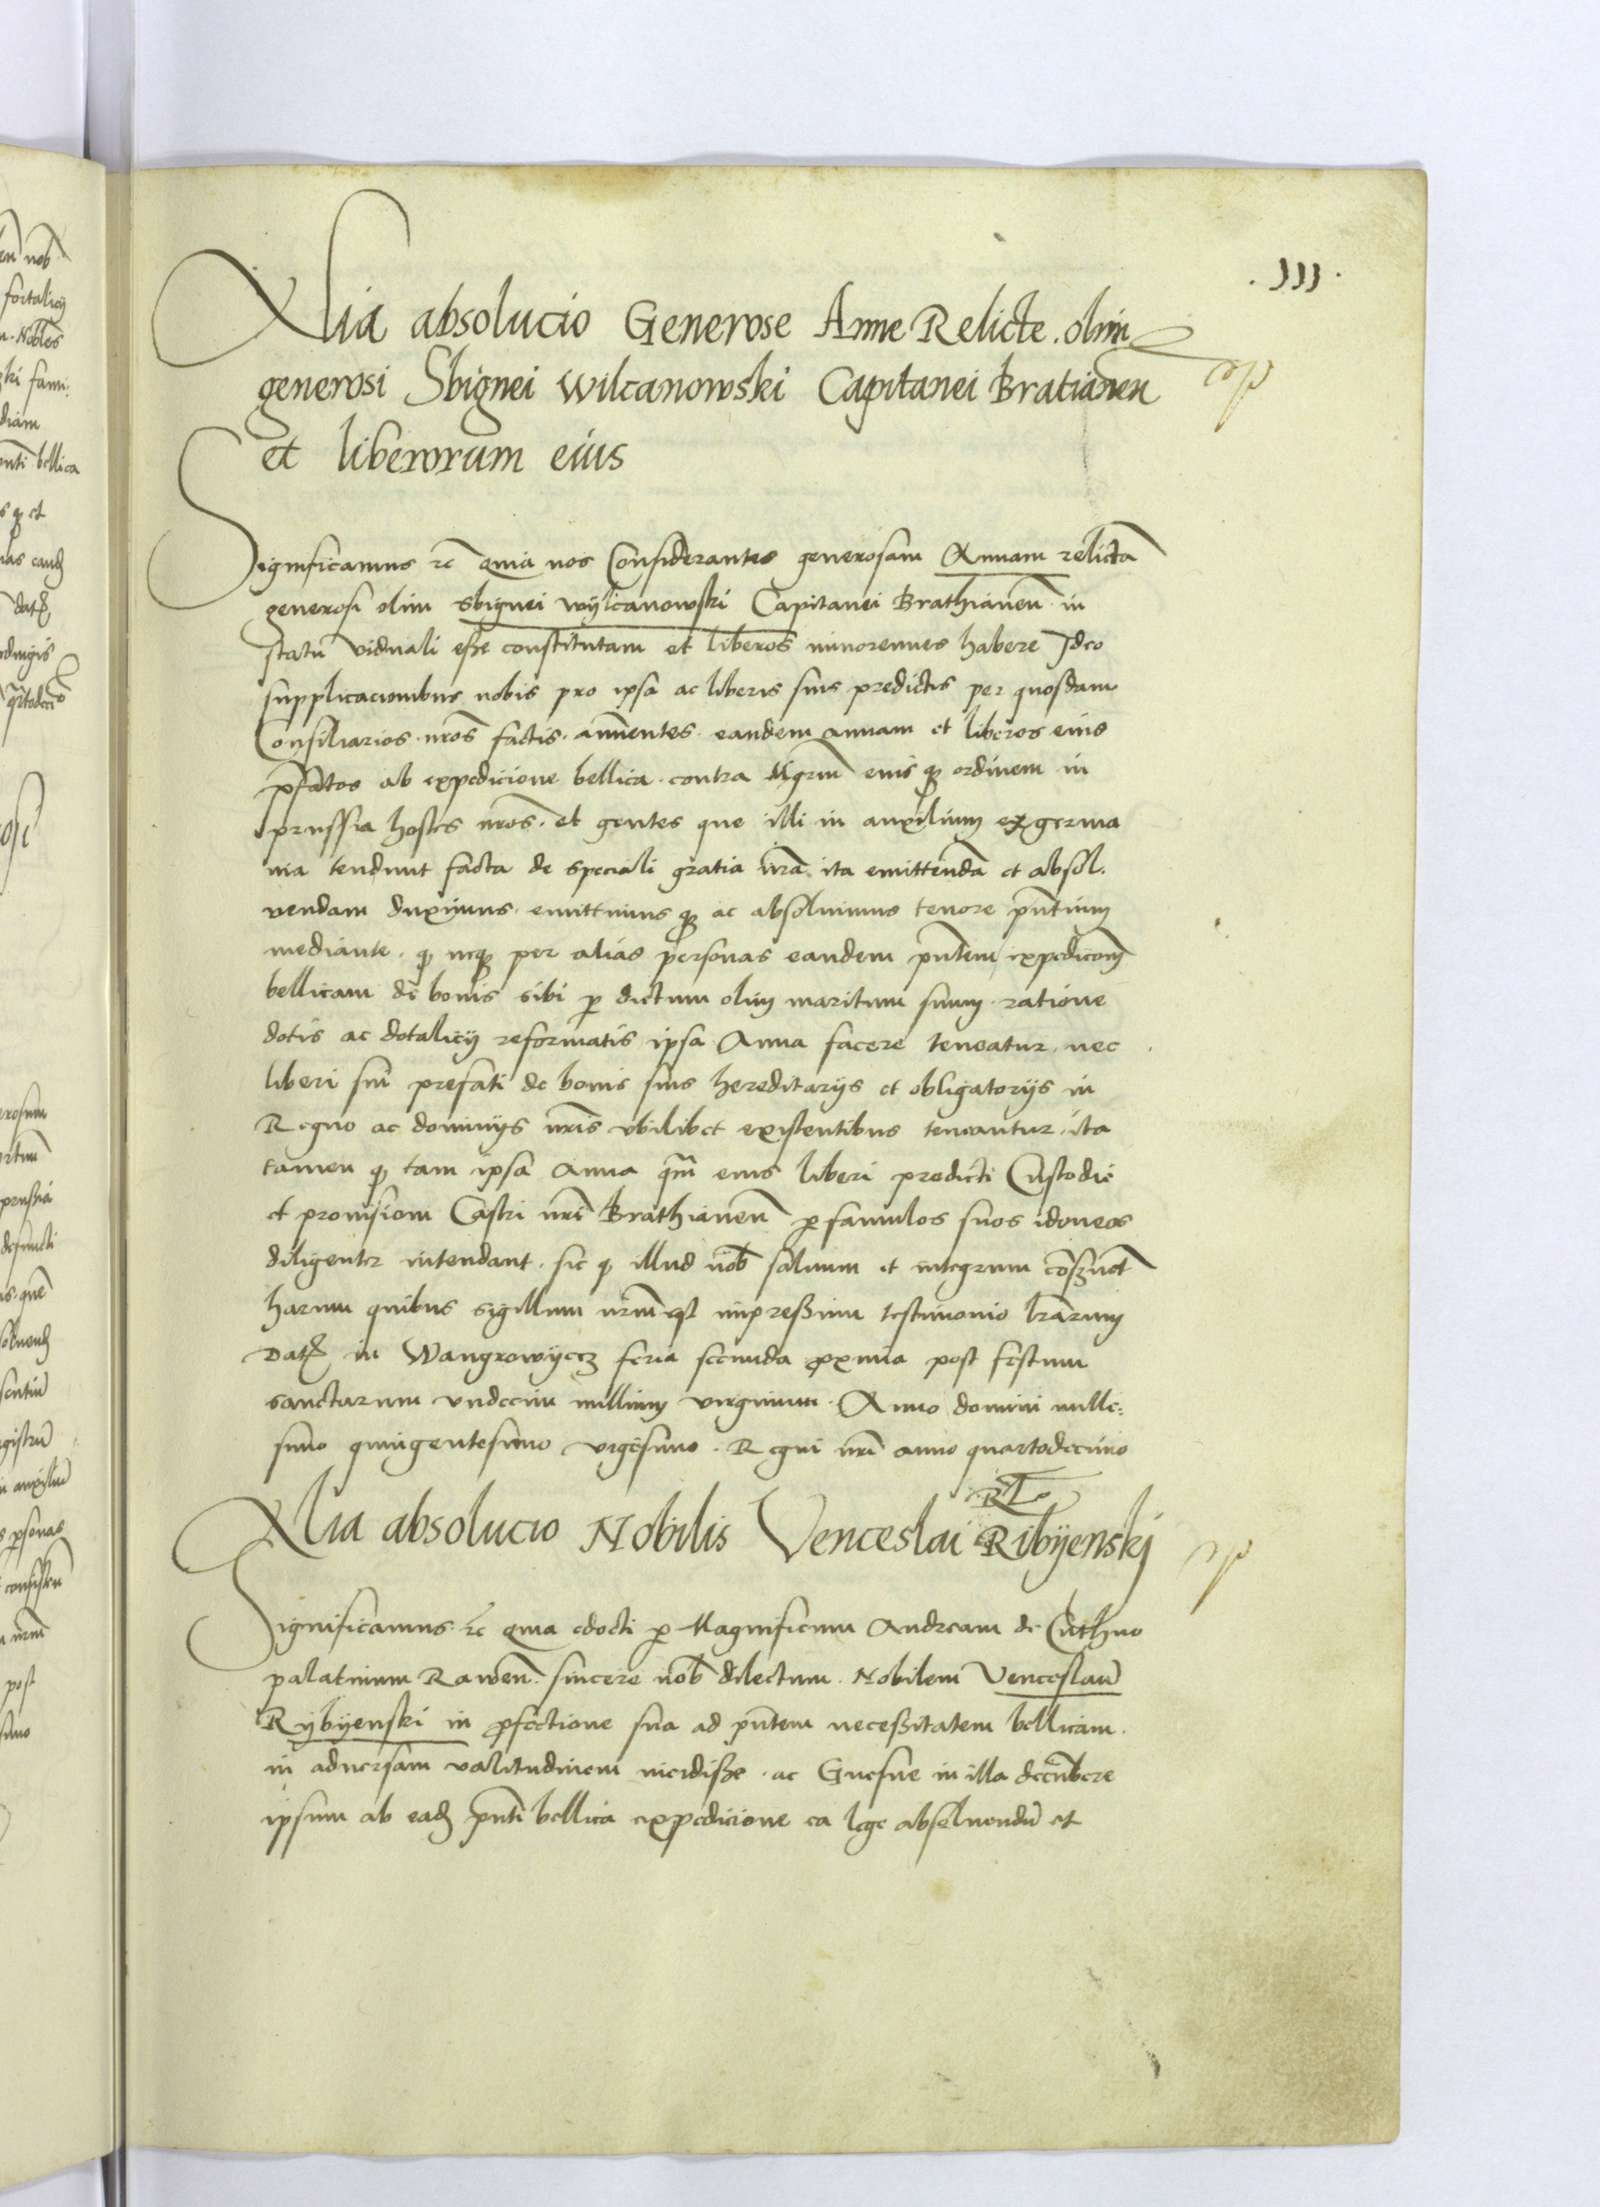 .III.
Alia absolucio Generose Anne Relicte olim
generosi Sbignei Wilcanowski Capitanei Bratianen
et liberorum eius
Significamus &c Quia nos Considerantes generosam Annam relictā
generosi olim Sbignei Wylcanowski Capitanei Brathianeñ in
statu viduali esse constitutam et liberos minorennes habere Ideo
supplicacionibus nobis pro ipsa ac liberis suis predictis per quosdam
Consiliarios nrōs factis annuentes eandem annam et liberos eius
p̄fatos ab expedicione bellica contra Mgrm̄ eius q̄ ordinem in
prussia hostes nrōs et gentes que illi in auxilium ex germa
nia tendunt facta de speciali gratia nrā ita emittendā et absol
vendam duximus emittimus q̄ ac absolvimus tenore pn̄tium
mediante q̄ neq̄ per alias personas eandem pn̄tem expedicionē
bellicam de bonis sibi p̄ dictum olim maritum suum ratione
dotis ac dotalicij reformatis ipsa Anna facere teneatur nec
liberi sui prefati de bonis suis hereditarijs et obligatorijs in
Regno ac dominijs nrīs vbilibet existentibus teneantur ita
tamen q̄ tam ipsa Anna qm̄ eius liberi predicti Custodie
et prouisioni Castri nrī Brathianeñ p̄ famulos suos idoneos
diligenter intendant sic q̄ illud nob̄ saluum et integrum cōseruet
harum quibus sigillum nrūm est impressum testimonio lrārum
Dat in Wangrowyecz feria secunda proxima post festum
sanctarum vndecim millium virginum Anno domini mille:
simo quingentesimo vigesimo Regni nrī anno quartodecimo
Alia absolucio Nobilis Venceslai Ribyenski
Significamus &c Quia edocti p̄ Magnificum Andream de Cuthno
palatinum Raweñ sincere nob̄ dilectum Nobilem Venceslaū
Rybyenski in p̄fectione sua ad pn̄tem necessitatem bellicam
in aduersam valitudinem incidisse ac Gnesne in illa decūbere
ipsum ab ead pn̄ti bellica expedicione ea lege absoluendū et